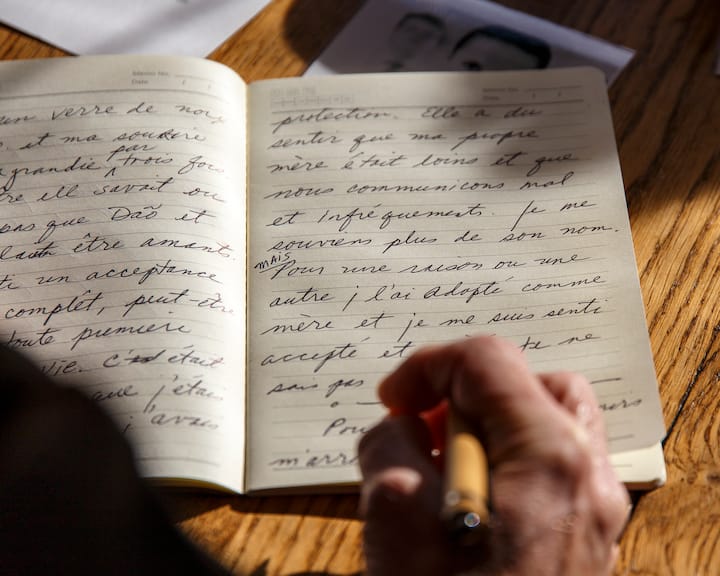 Memo No.
Date
un verre de
et ma sourire
par
agrandie trois fois
elle savait ou
pas que Daõ et
être amants.
un acceptance
complêt, peut-être
toute premiere
vie. c'était
que j'étais
j'avais
Date
protection. Elle a du
sentir que ma propre
mère était loins et que
nous communicons mal
et infréquements. Je me
souviens plus de son nom.
MAIS
Pour une raison ou une
autre j l'ai adopté comme
mère et je me suis senti
accepté et ne
sais pas
Pou
m'arri